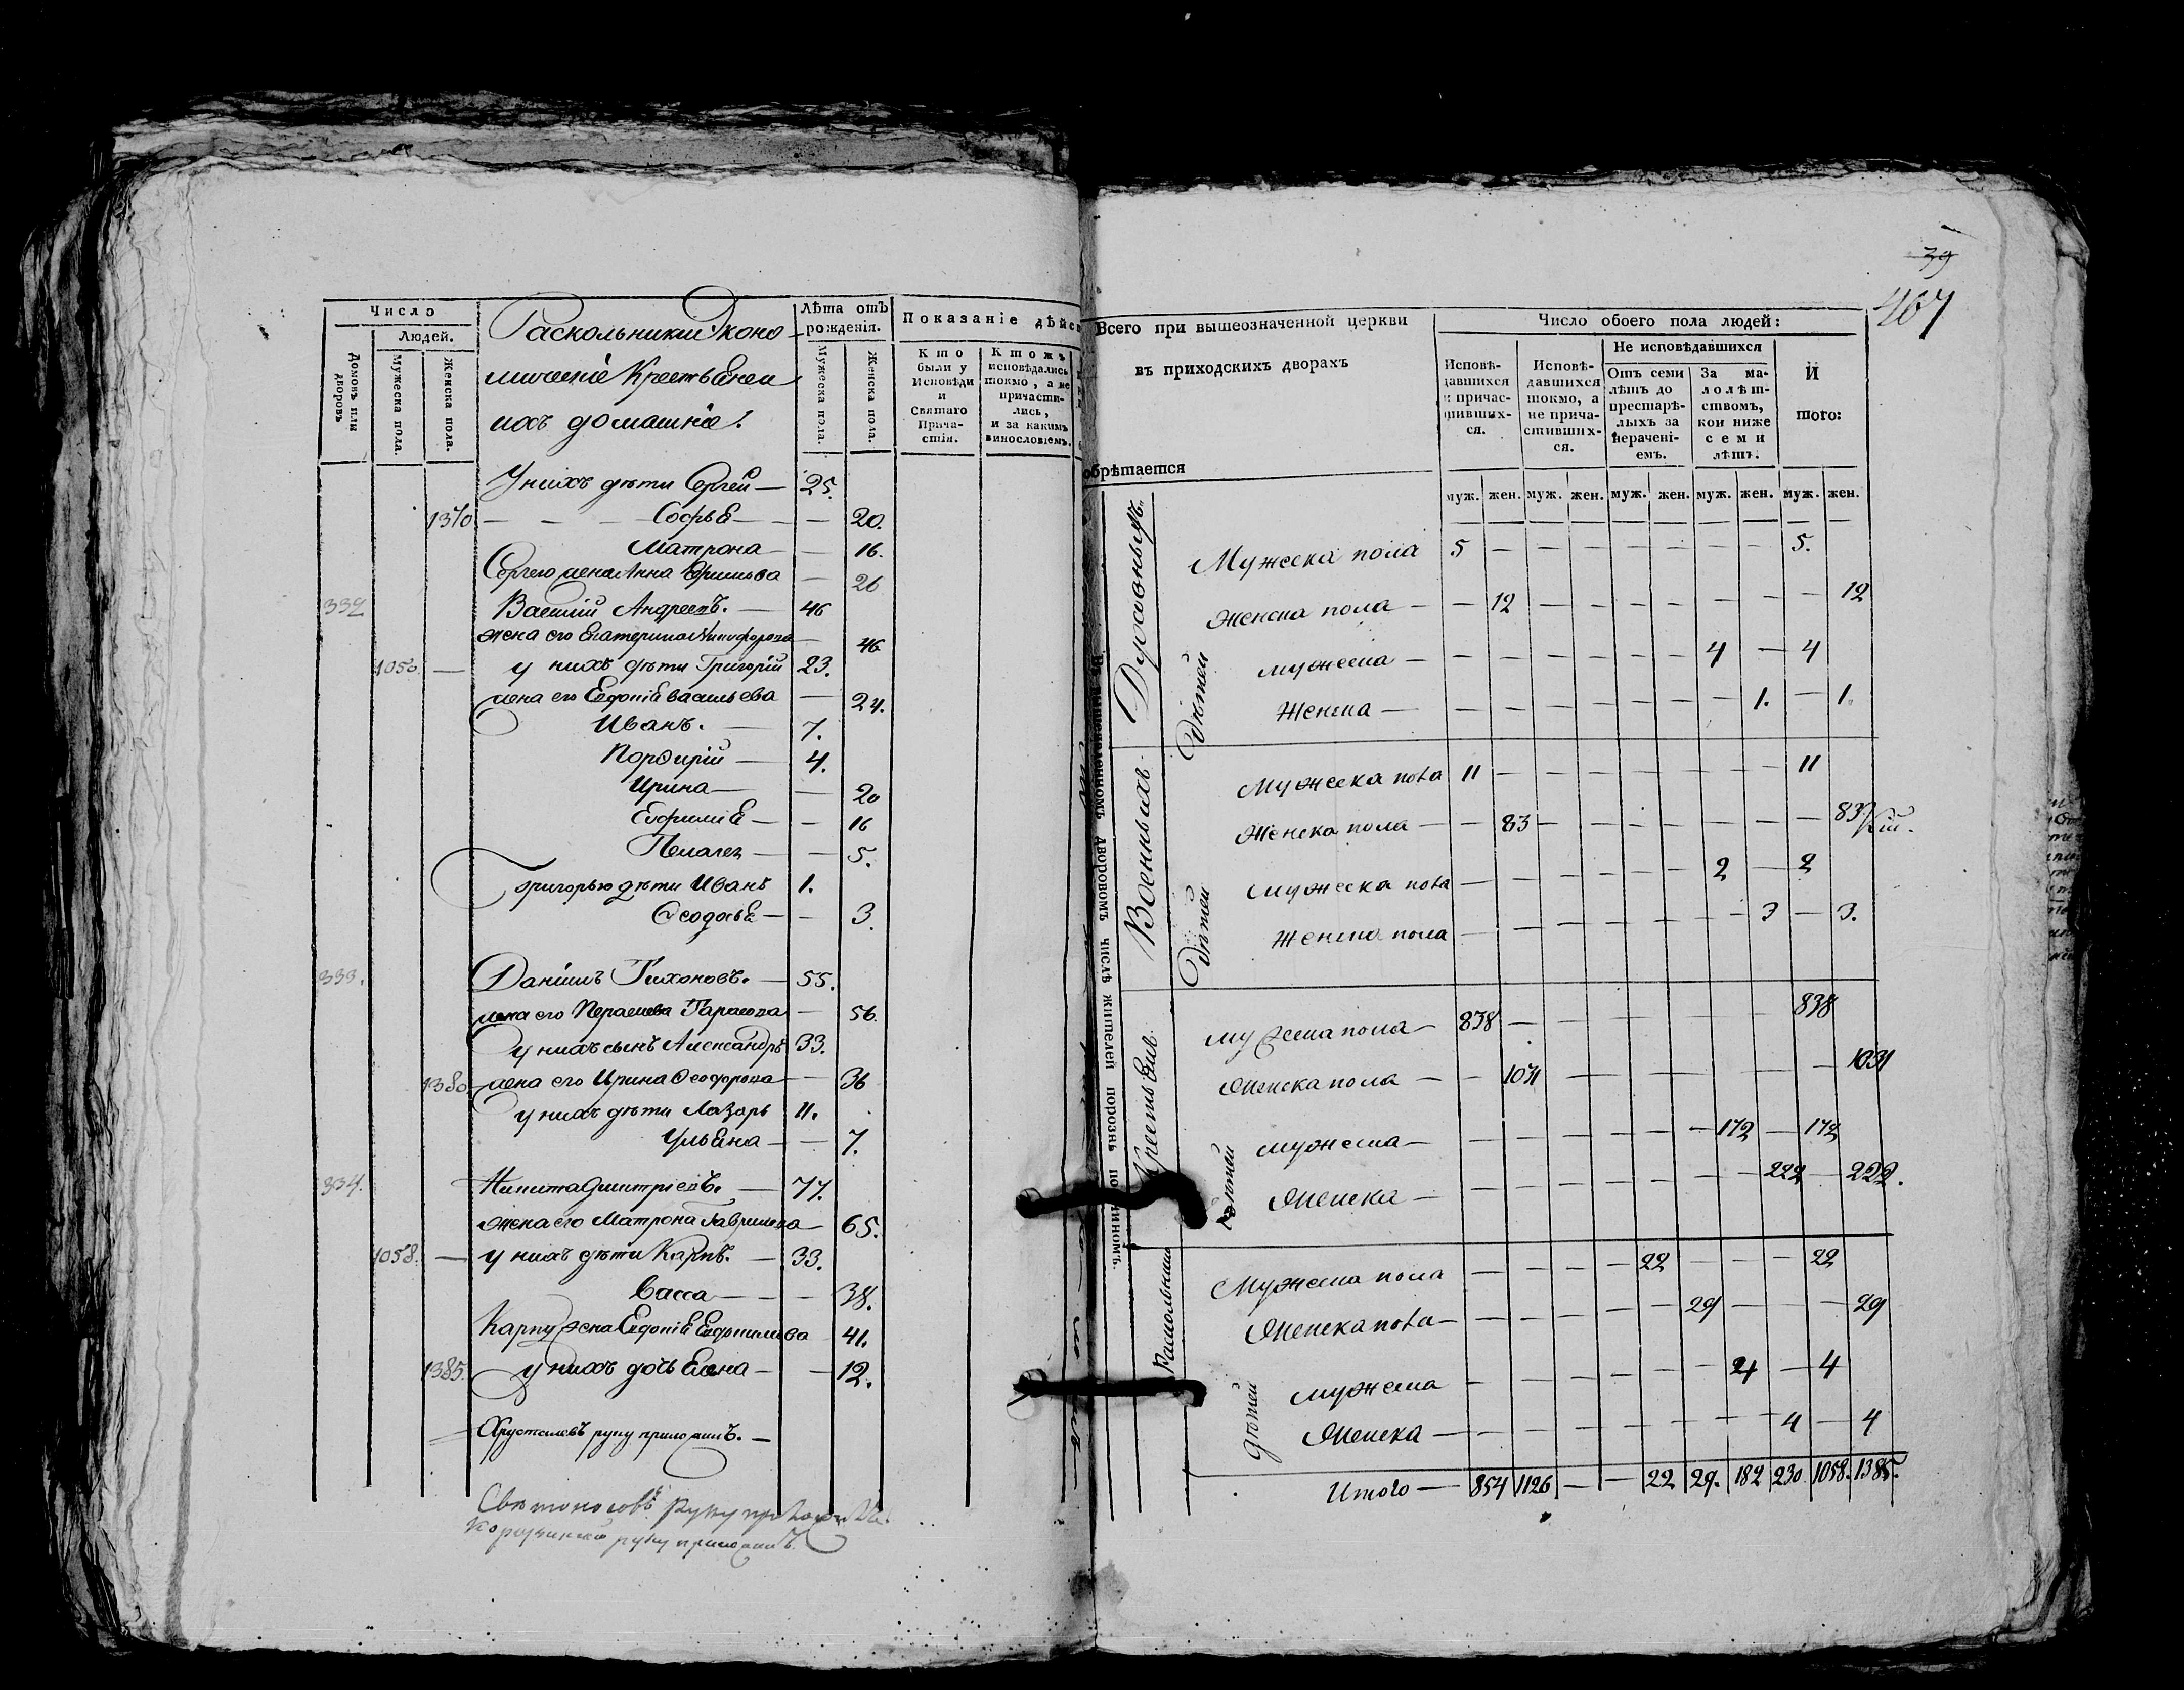 Число
Людей.
Домовъ или дворовъ
Мужеска пола.
Женска пола.
Раскольники Эконо-
мическіе Крестьянеи
ихъ домашніе.
Лѣта отъ рожденія.
Мужеска пола.
Женска пола.
Показаніе дѣйс
Кто были у Исповѣди и Святаго Прича-стія.
Ктожъ исповѣдались токмо, а не причасти-лись, и за какимъ винословіемъ.
У нихъ дѣти Сергей — 25.
1370 — — — Софья — — 20.
Матрона — — 16.
Сергею жена Анна Ефимова — 26
332 Василій Андреевъ. — 46
жена его Екатерина Никифорова — 46
1050. — у нихъ дѣти Григорій 23.
жена его Евдокія васильева — 24.
Иванъ. — 7.
Порфирій — 4.
Ирина — — 20
Евфимія — — 16
Пелагея — — 5.
Григорью дѣти Иванъ 1.
Ѳеодосья — — 3.
333. Даніилъ Тихоновъ. — 55.
жена его Парасковья Тарасова — 56.
у нихъ сынъ Александръ 33.
1380. жена его Ирина Ѳеодорова — 36
у нихъ дѣти Лазарь 11.
Ульяна — — 7.
334. Никита Дмитріевъ. — 77.
жена его Матрона Гаврилова — 65.
1058. — у нихъ дѣти Карпъ. — 33.
Васса — — — 38.
Карпу жена Евдокія 41.
1385. у нихъ дочь — — 12.
руку приложилъ. —
руку приложилъ.
руку приложилъ.
39
467
Всего при вышеозначенной церкви
въ приходскихъ дворахъ
обрѣтается
Число обоего пола людей:
Исповѣ-давшихся и причас-тивших-ся.
Исповѣ-давшихся токмо, а не прича-стивших-ся.
Не исповѣдавшихся
Отъ семи лѣтъ до престарѣ-лыхъ за нерачені-емъ.
За ма-лолѣт-ствомъ, кои ниже семи лѣтъ.
И того:
муж. жен. муж. жен. муж. жен. муж. жен. муж. жен.
дворовомъ числѣ жителей порознь по чиномъ.
Духовныхъ.
Мужеска пола 5 — — — — — — — 5.
Женска пола — — 12 — — — — — — — 12
Дѣтей
мужеска — — — — — — — 4 — 4
Женска — — — — — — — — 1. — 1.
Военныхъ.
Мужеска пола 11 — — — — — — — 11
Женска пола — — 83 — — — — — — — 83
Дѣтей
Мужеска пола — — — — — — 2 — 2
Женска пола — — — — — — — 3 — 3.
Крестьянъ.
мужеска пола — 838 — — — — — 838
Женска пола — — 1031 — — — — 1031
дѣтей
мужеска — — — — — — — 172 — 172
Женска — — — — — — — — 222 — 222.
Раскольники
Мужеска пола — — — — 22 — — — 22
Женска пола — — — — — — 29 — — — 29
дѣтей
мужеска — — — — — — 4 — 4
Женска — — — — — — — — 4 — 4
Итого — 854 1126 — — 22 29. 182 230 1058. 1385.